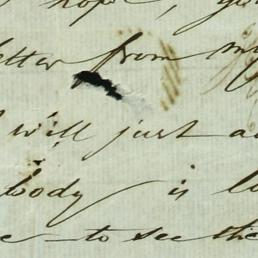 hope, yo
etter from my
will just a
body is l
e - to see the